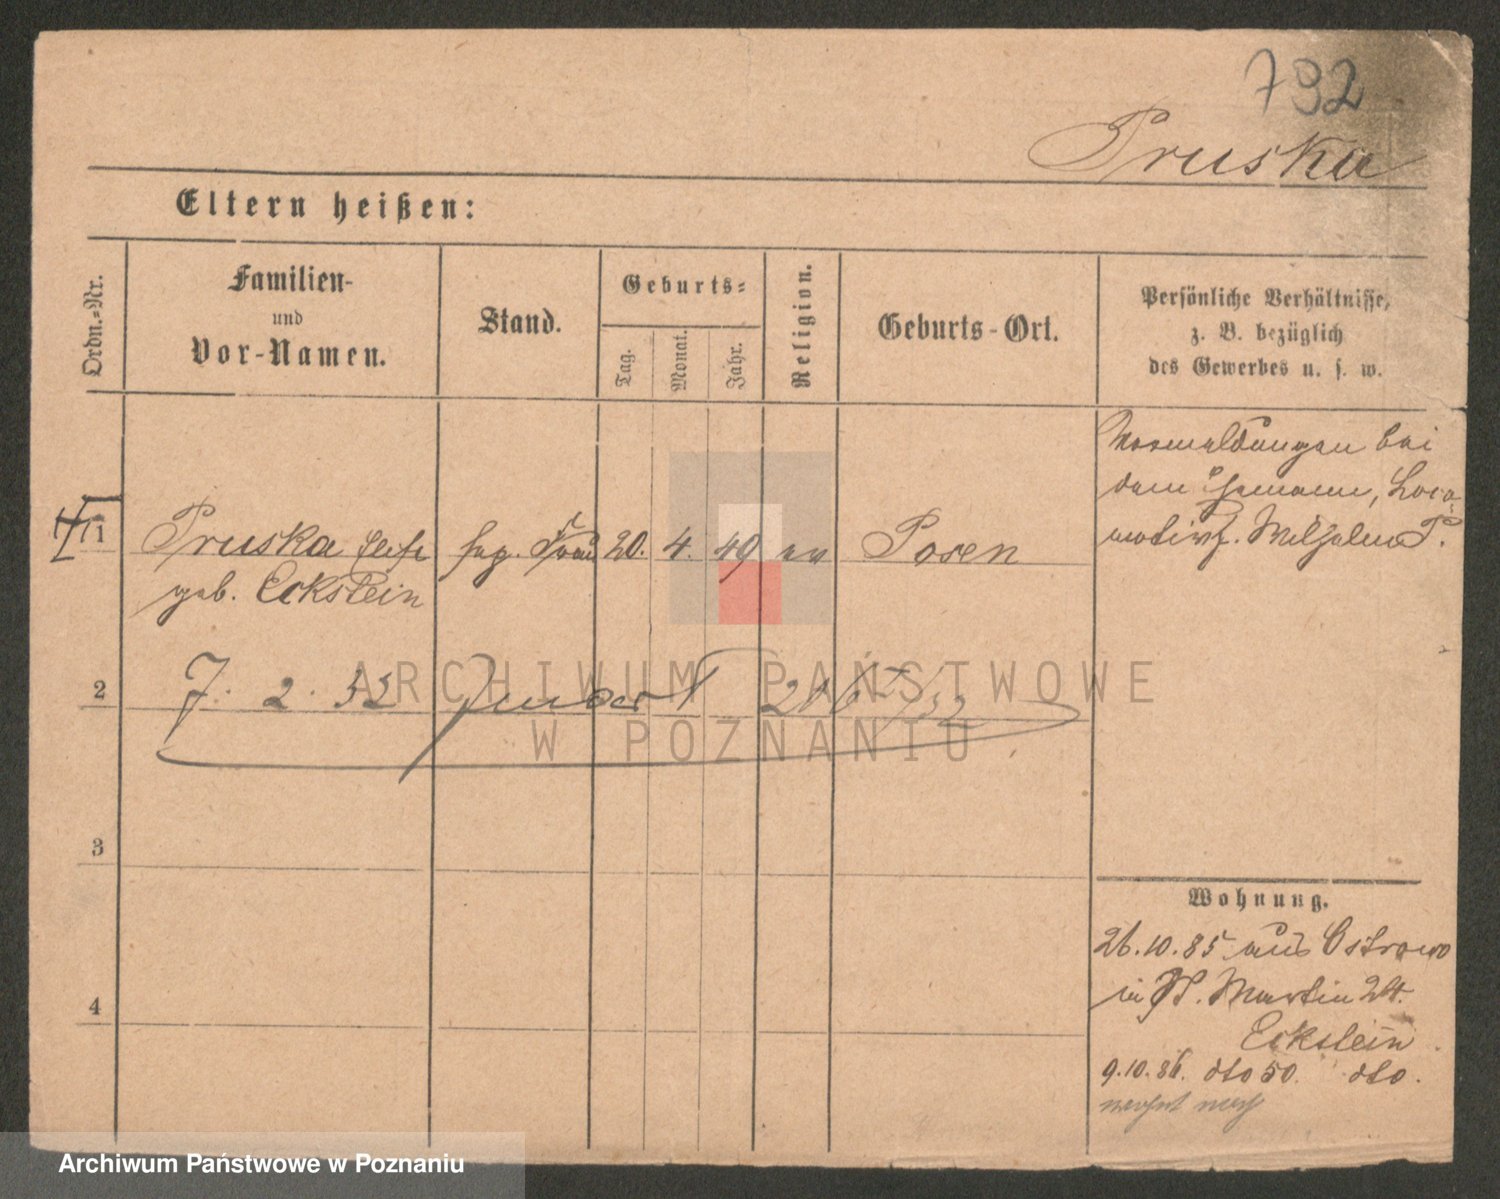 792
Pruska
Eltern heißen:
Ordn.-Nr.
Familien-
und
Vor-Namen.
Stand.
Geburts-
Tag.
Monat.
Jahr.
Religion.
Geburts-Ort.
Persönliche Verhältnisse,
z. B. bezüglich
des Gewerbes u. s. w.
Vormeldungen bei
dem Ehemann, Loco-
motivf. Wilhelm P.
1
Pruska
Frau 20. 4. 49 Posen
geb. Eckstein
2
7. 2. 32
3
Wohnung.
26.10.85 aus Ostrowo
in St. Martin 24.
Eckstein
4
9.10.86. dto 50. dto.
wohnt noch
ARCHIWUM PAŃSTWOWE
W POZNANIU
Archiwum Państwowe w Poznaniu